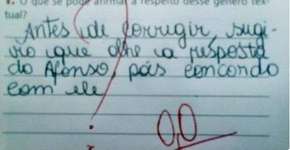 1. O que se pode afirmar a respeito desse gênero tex-
tual?
Antes de corrigir, sugi-
ro que olhe a resposta
do Afonso, pois concordo
com ele
0,0